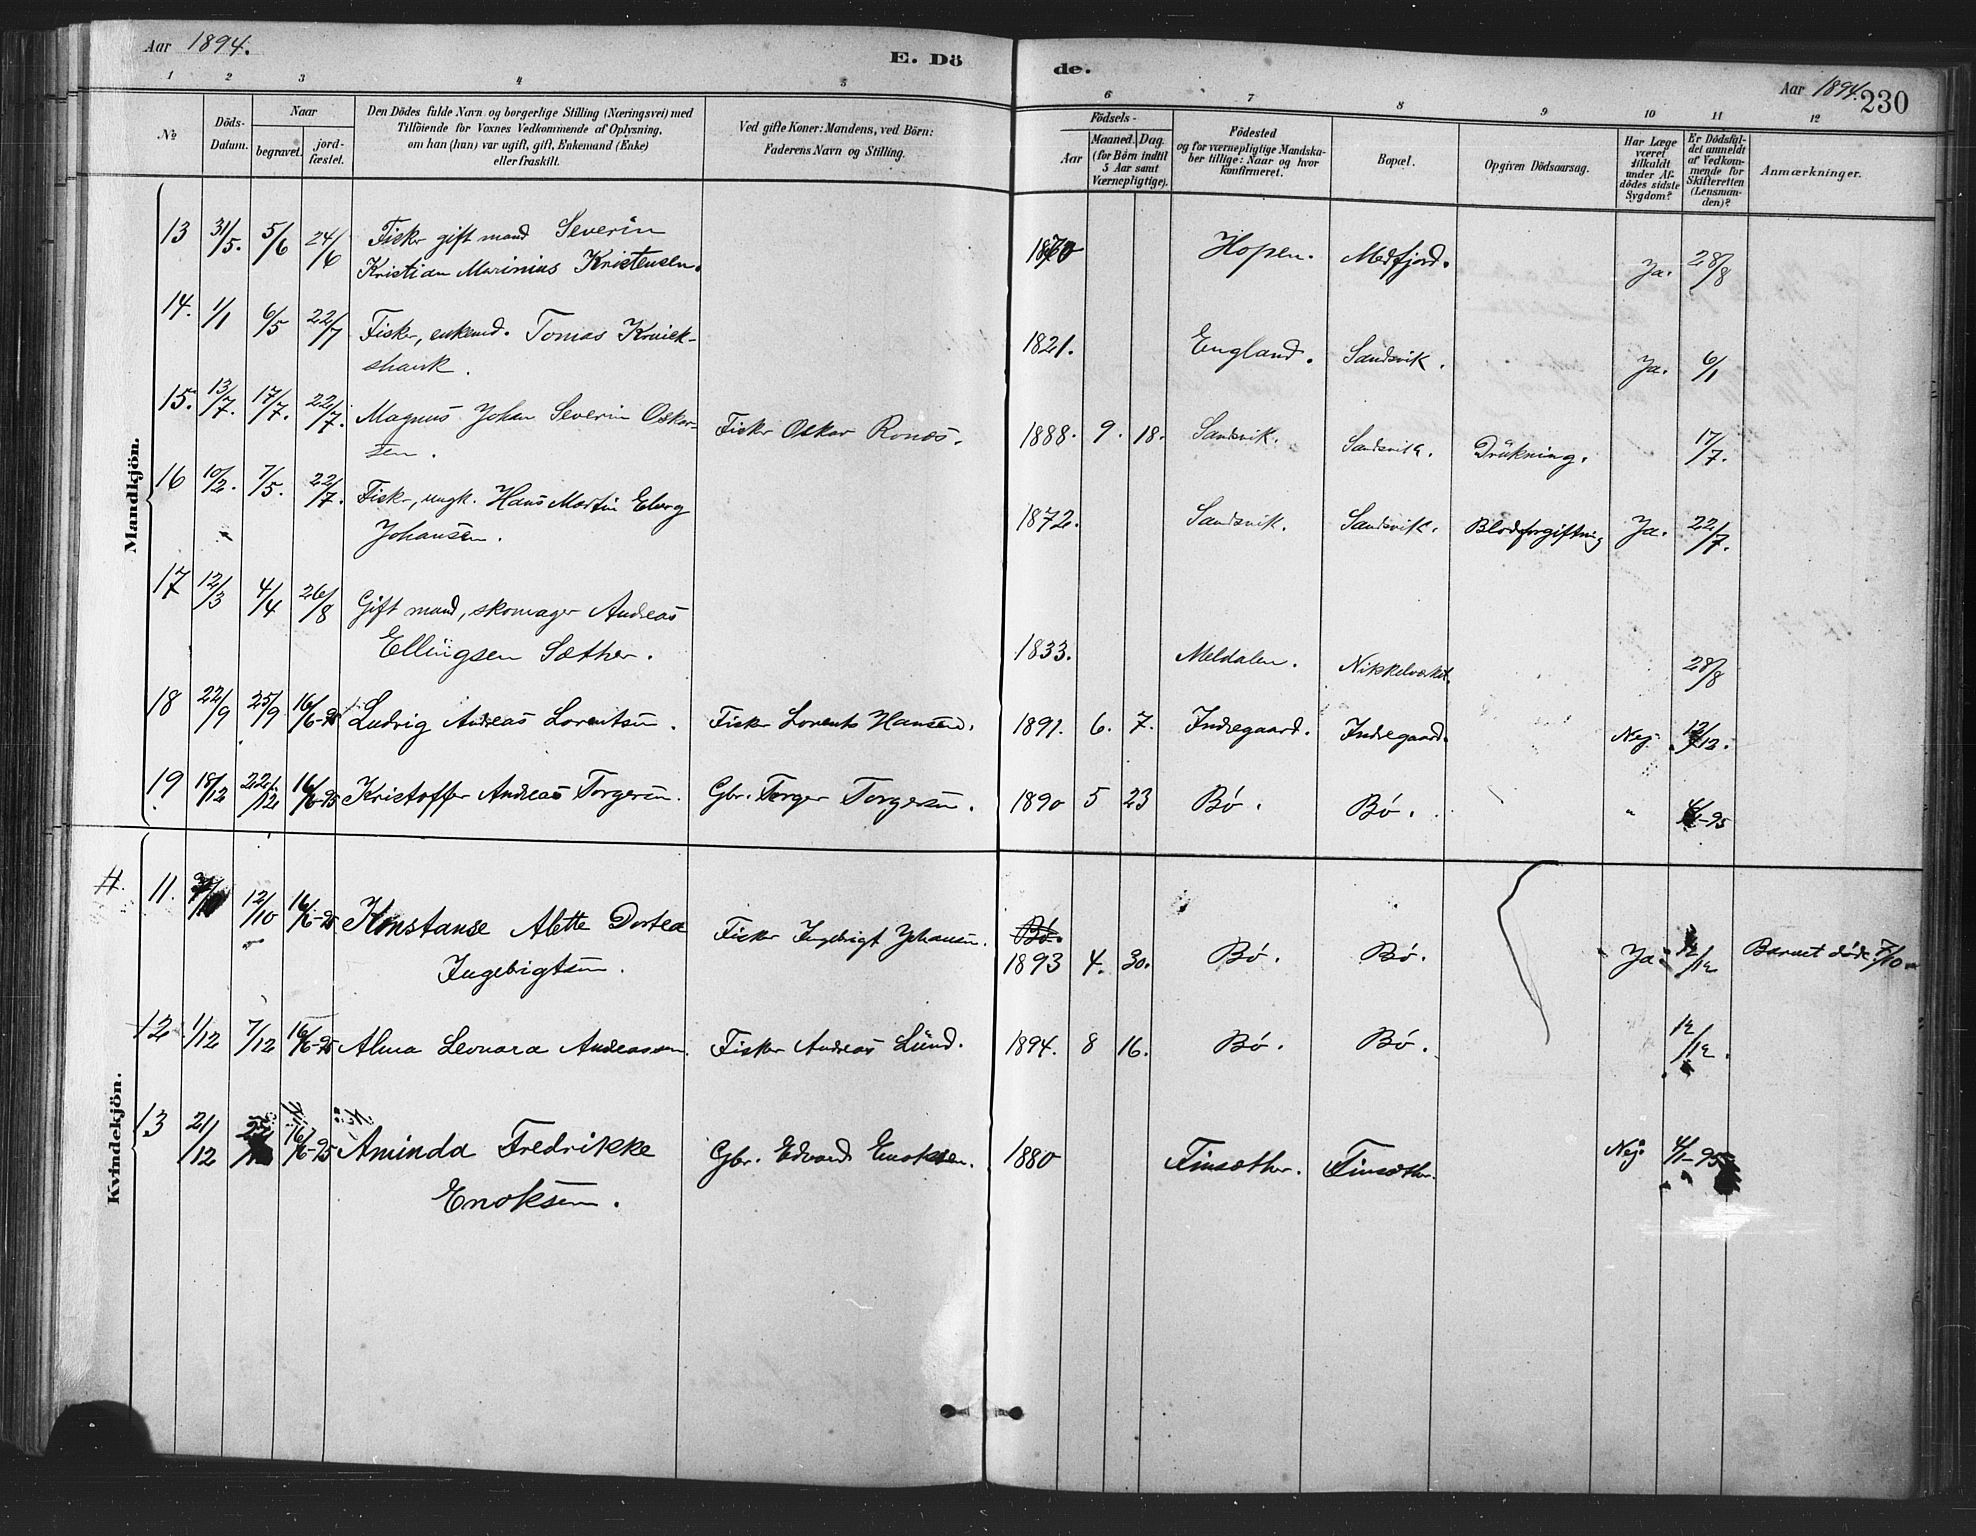 Aar 1894.
E. Dö
de.
Aar 1894. 230
1 2 3 4 5 6 7 8 9 10 11 12
№
Döds-
Datum.
Naar
begravet.
jord-
fæstet.
Den Dödes fulde Navn og borgerlige Stilling (Næringsvei) med
Tilföiende for Voxnes Vedkommende af Oplysning,
om han (hun) var ugift, gift, Enkemand (Enke)
eller fraskilt.
Ved gifte Koner: Mandens, ved Börn:
Faderens Navn og Stilling.
Födsels-
Aar
Maaned. Dag.
(for Börn indtil
5 Aar samt
Værnepligtige).
Födested
og for værnepligtige Mandska-
ber tillige: Naar og hvor
konfirmeret.
Bopæl.
Opgiven Dödsaarsag.
Har Læge
været
tilkaldt
under Af-
dödes sidste
Sygdom?
Er Dödsfal-
det anmeldt
af Vedkom-
mende for
Skifteretten
(Lensman-
den)?
Anmærkninger.
Mandkjön.
13 31/5. 5/6 24/6 Fisker gift mand Severin
Kristian Marinius Kristensen. 1870 Hopen. Medfjord. Ja. 28/8
14. 1/1 6/5 22/7 Fisker, enkemd. Tomas Kruick-
shank. 1821. England. Sandsvik. Ja. 6/1
15. 13/7. 17/7. 22/7. Magnus Johan Severin Oskar-
sen. Fisker Oskar Ronæs. 1888. 9. 18. Sandsvik. Sandsvik. Drukning. 17/7.
16 10/2. 7/5. 22/7. Fisk., ungk. Hans Martin Eberg
Johansen. 1872. Sandsvik. Sandsvik. Blodforgiftning Ja. 22/7.
17 12/3 4/4 26/8 Gift mand, skomager Andreas
Ellingsen Sæther. 1833. Meldalen. Nikkelværket. 28/8
18 22/9 25/9 16/6-95 Ludvig Andreas Lorentsen. Fisker Lorents Hansen. 1891. 6. 7. Indregaard. Indregaard. Nej. 12/12.
19 18/12 22/12 16/6-95 Kristoffer Andreas Torgersen. Gbr. Torger Torgersen. 1890 5 23 Bø. Bø. " 4/1-95
Kvindekjön.
11. 12/10 16/6-95 Konstanse Alette Dortea
Ingebrigtsen. Fisker Ingebrigt Johansen. Bø.
1893 4. 30. Bø. Bø. Ja. 12/12 Barnet døde 7/10
12 1/12 7/12 16/6-95 Alma Leonara Andreassen. Fisker Andreas Lund. 1894. 8 16. Bø. Bø. 12/12.
13 21/12 16/6-95 Aminda Fredrikke
Enoksen. Gbr. Edvard Enoksen. 1880 Finsæther. Finsæther. Nej. 4/1-95